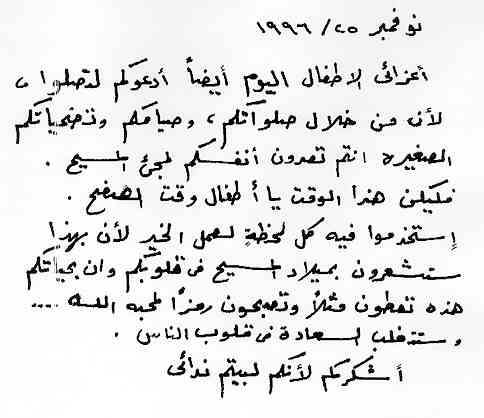 نوفمبر ٢٥/ ١٩٩٦
أعزائى الاطفال اليوم أيضاً أدعوكم لتصلوا،
لأن من خلال صلواتكم، وصيامكم وتضحياتكم
الصغيرة انتم تعدون أنفسكم لمجئ المسيح.
فليكن هذا الوقت يا أطفال وقت الصفح.
إستخدموا فيه كل لحظةٍ لعمل الخير لأن بهذا
ستشعرون بميلاد المسيح فى قلوبكم وان بحياتكم
هذه تعطون مثلاً وتصبحون رمزاً لمحبه الله ....
وستدخلب لسعادة فى قلوب الناس.
أشكركم لأنكم لبيتم ندائى